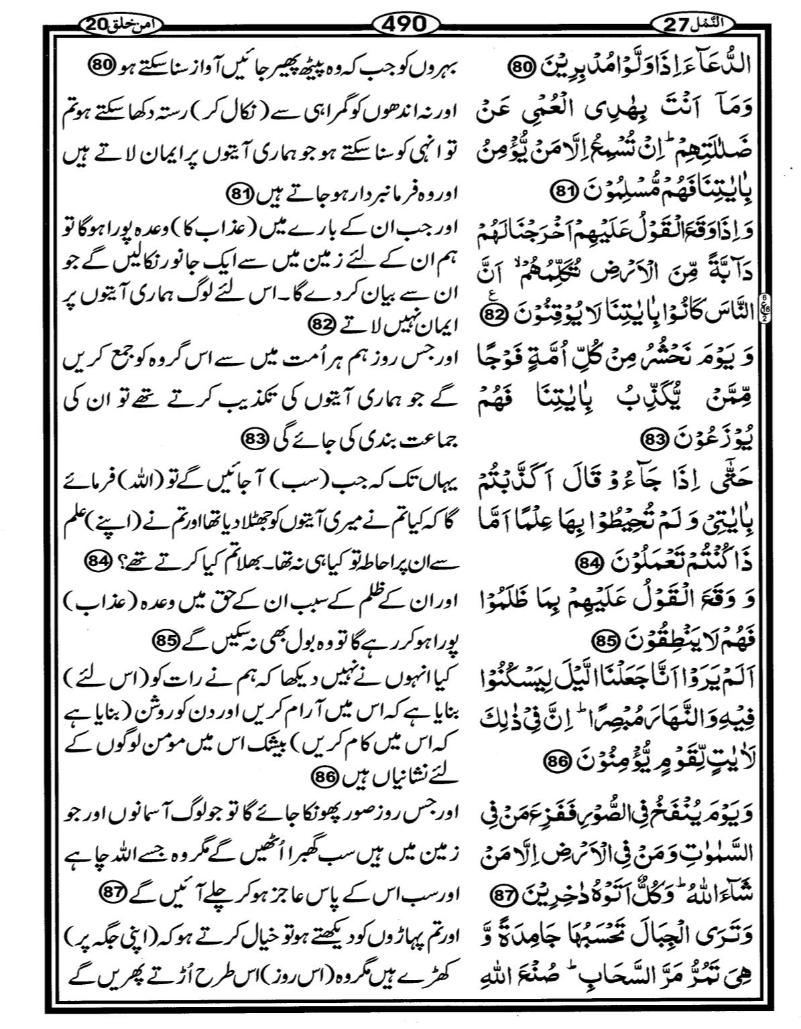 النَّمل 27
490
امن خلق 20
الدُّعَآءَ اِذَا وَلَّوْا مُدْبِرِیْنَ 80
وَمَآ اَنْتَ بِهٰدِی الْعُمْیِ عَنْ
ضَلٰلَتِهِمْ ؕ اِنْ تُسْمِعُ اِلَّا مَنْ یُّؤْمِنُ
بِاٰیٰتِنَا فَهُمْ مُّسْلِمُوْنَ 81
وَ اِذَا وَقَعَ الْقَوْلُ عَلَیْهِمْ اَخْرَجْنَا لَهُمْ
دَآبَّةً مِّنَ الْاَرْضِ تُكَلِّمُهُمْ ۙ اَنَّ
النَّاسَ كَانُوْا بِاٰیٰتِنَا لَا یُوْقِنُوْنَ 82 ع
وَ یَوْمَ نَحْشُرُ مِنْ كُلِّ اُمَّةٍ فَوْجًا
مِّمَّنْ یُّكَذِّبُ بِاٰیٰتِنَا فَهُمْ
یُوْزَعُوْنَ 83
حَتّٰۤی اِذَا جَآءُوْ قَالَ اَكَذَّبْتُمْ
بِاٰیٰتِیْ وَ لَمْ تُحِیْطُوْا بِهَا عِلْمًا اَمَّا
ذَا كُنْتُمْ تَعْمَلُوْنَ 84
وَ وَقَعَ الْقَوْلُ عَلَیْهِمْ بِمَا ظَلَمُوْا
فَهُمْ لَا یَنْطِقُوْنَ 85
اَلَمْ یَرَوْا اَنَّا جَعَلْنَا الَّیْلَ لِیَسْكُنُوْا
فِیْهِ وَ النَّهَارَ مُبْصِرًا ؕ اِنَّ فِیْ ذٰلِكَ
لَاٰیٰتٍ لِّقَوْمٍ یُّؤْمِنُوْنَ 86
وَ یَوْمَ یُنْفَخُ فِی الصُّوْرِ فَفَزِعَ مَنْ فِی
السَّمٰوٰتِ وَ مَنْ فِی الْاَرْضِ اِلَّا مَنْ
شَآءَ اللّٰهُ ؕ وَ كُلٌّ اَتَوْهُ دٰخِرِیْنَ 87
وَ تَرَی الْجِبَالَ تَحْسَبُهَا جَامِدَةً وَّ
هِیَ تَمُرُّ مَرَّ السَّحَابِ ؕ صُنْعَ اللّٰهِ
بہروں کو جب کہ وہ پیٹھ پھیر جائیں آواز سنا سکتے ہو 80
اور نہ اندھوں کو گمراہی سے (نکال کر) رستہ دکھا سکتے ہو تم
تو انہی کو سنا سکتے ہو جو ہماری آیتوں پر ایمان لاتے ہیں
اور وہ فرمانبردار ہو جاتے ہیں 81
اور جب ان کے بارے میں (عذاب کا) وعدہ پورا ہو گا تو
ہم ان کے لئے زمین میں سے ایک جانور نکالیں گے جو
ان سے بیان کر دے گا۔ اس لئے لوگ ہماری آیتوں پر
ایمان نہیں لاتے 82
اور جس روز ہم ہر اُمت میں سے اس گروہ کو جمع کریں
گے جو ہماری آیتوں کی تکذیب کرتے تھے تو ان کی
جماعت بندی کی جائے گی 83
یہاں تک کہ جب (سب) آ جائیں گے تو (اللہ) فرمائے
گا کہ کیا تم نے میری آیتوں کو جھٹلا دیا تھا اور تم نے (اپنے) علم
سے ان پر احاطہ تو کیا ہی نہ تھا۔ بھلا تم کیا کرتے تھے؟ 84
اور ان کے ظلم کے سبب ان کے حق میں وعدہ (عذاب)
پورا ہو کر رہے گا تو وہ بول بھی نہ سکیں گے 85
کیا انہوں نے نہیں دیکھا کہ ہم نے رات کو (اس لئے)
بنایا ہے کہ اس میں آرام کریں اور دن کو روشن (بنایا ہے
کہ اس میں کام کریں) بیشک اس میں مومن لوگوں کے
لئے نشانیاں ہیں 86
اور جس روز صور پھونکا جائے گا تو جو لوگ آسمانوں اور جو
زمین میں ہیں سب گھبرا اُٹھیں گے مگر وہ جسے اللہ چاہے
اور سب اس کے پاس عاجز ہو کر چلے آئیں گے 87
اور تم پہاڑوں کو دیکھتے ہو تو خیال کرتے ہو کہ (اپنی جگہ پر)
کھڑے ہیں مگر وہ (اس روز) اس طرح اُڑتے پھریں گے